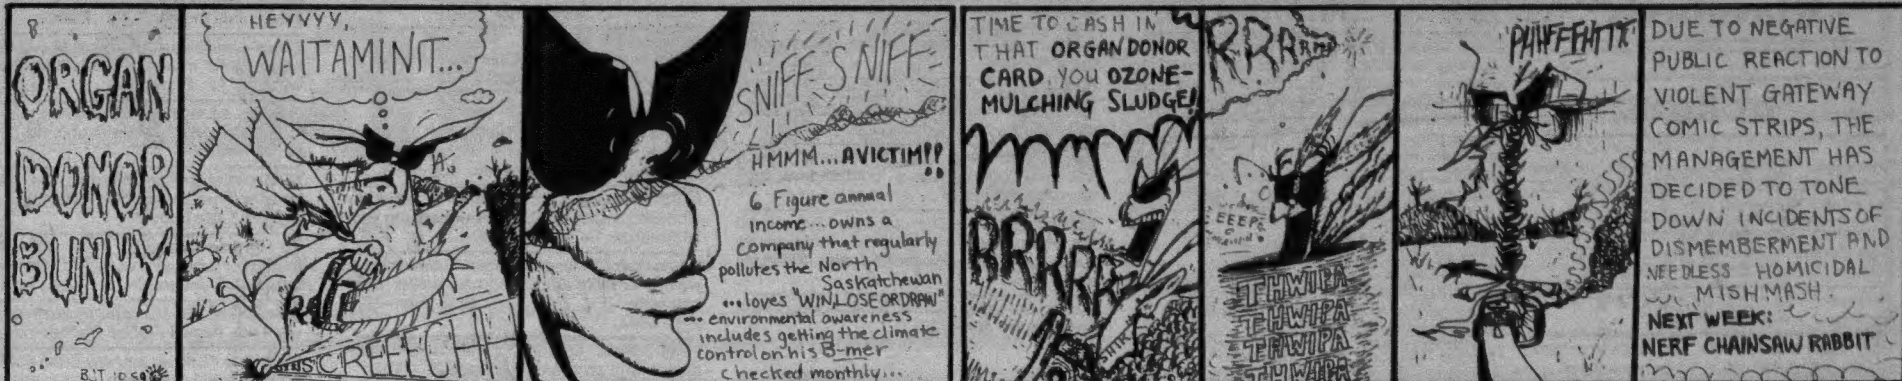 ORGAN
DONOR
BUNNY
HEYVVY,
WAITAMINIT...
SCREEECH
SNIFF SNIFF
HMMM...A VICTIM!!
6 Figure annual
income...owns a
company that regularly
pollutes the North
Saskatchewan
...loves "WIN, LOSE OR DRAW"
... environmental awareness
includes getting the climate
control on his B-mer
checked monthly...
TIME TO CASH IN
THAT ORGAN DONOR
CARD, YOU OZONE-
MULCHING SLUDGE!
RRRRR
RRRRRR
EEEP!
THWIPA
THWIPA
THWIPA
THWIPA
DUE TO NEGATIVE
PUBLIC REACTION TO
VIOLENT GATEWAY
COMIC STRIPS, THE
MANAGEMENT HAS
DECIDED TO TONE
DOWN INCIDENTS OF
DISMEMBERMENT AND
NEEDLESS HOMICIDAL
MISHMASH.
NEXT WEEK:
NERF CHAINSAW RABBIT